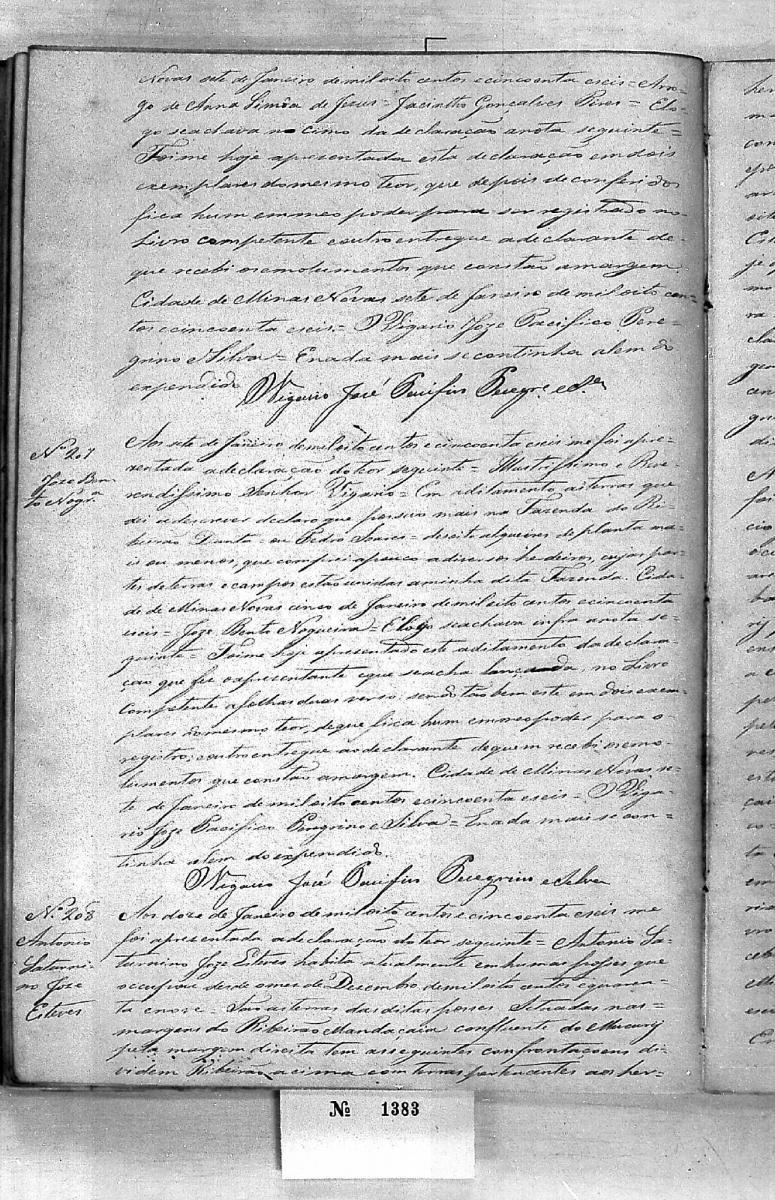 Novas sete de Janeiro de mil oito centos e cincoenta e seis = Aro-
go de Anna Simôa de Jezus = Jacintho Gonçalves Peres = E lo-
go se achava no cimo da declaração a nota seguinte =
Foi me hoje apresentada esta declaração em dois
exemplares do mesmo teor, que depois de conferidos
fica hum em meo poder para ser registrado no
Livro competente e outro entregue a declarante de
que recebi os emolumentos que constão a margem.
Cidade de Minas Novas sete de Janeiro de mil oito cen-
tos e cincoenta e seis = O Vigario Joze Pacifico Pere-
grino e Silva = E nada mais se continha alem do
expendido
Vigario José Pacifico Peregr.º e S.ª
Nº 207
Joze Ben-
to Nogr.ª
Aos sete de Janeiro de mil oito centos e cincoenta e seis me foi apre-
zentada a declaração do teor seguinte = Illustrissimo e Reve-
rendissimo Senhor Vigario = Em aditamento as terras que
dei a descrever declaro que possuo mais na Fazenda do Ri-
beirão Dante = ou Pedro Soares = desoito alqueires de planta ma-
is ou menos, que comprei a pouco a diversos herdeiros, cujas par-
tes de terras e campos estão unidas a minha dita Fazenda. Cida-
de de Minas Novas cinco de Janeiro de mil oito centos e cincoenta
e seis = Joze Bento Nogueira = E logo se achava infra a nota se-
guinte = Foi me hoje apresentado este aditamento da declara-
ção que fez o apresentante e que se acha lançada, no Livro
Competente a folhas duas verso: sendo tão bem este em dois exem-
plares do mesmo teor, de que fica hum em meo poder, para o
registro; e outro entregue ao declarante de quem recebi os emo-
lumentos que constão a margem. Cidade de Minas Novas se-
te de Janeiro de mil oito centos e cincoenta e seis = O Viga-
rio Joze Pacifico Peregrino e Silva = E nada mais se con-
tinha alem do expendido.
Vigario José Pacifico Peregrino e Silva
Nº 208
Antonio
Saturni-
no Joze
Esteves
Aos doze de Janeiro de mil oito centos e cincoenta e seis me
foi apresentada a declaração do teor seguinte = Antonio Sa-
turnino Joze Esteves habita atualmente em humas posses que
occupou desde o mes de Dezembro de mil oito centos e quaren-
ta e nove = São as terras das ditas posses Setuadas nas
margens do Ribeirão Mandaçaia confluente do Mucury
pela margem direita tem as seguintes confrontaçoens di-
videm Ribeirão acima com terras pertencentes aos her-
Nº 1383